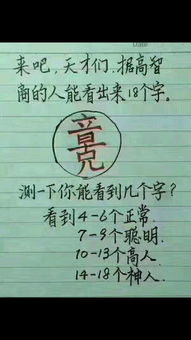 来吧，天才们，据高智
商的人能看出来18个字。
测一下你能看到几个字？
看到4-6个正常.
7-9个聪明.
10-13个高人.
14-18个神人.